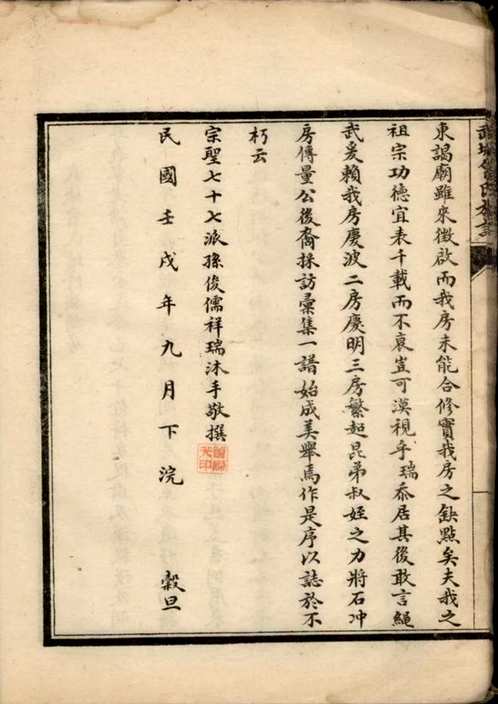 武城曾氏族譜
東謁廟雖來徵啟而我房未能合修實我房之缺點矣夫我之
祖宗功德宜表千載而不哀豈可漠視乎瑞忝居其後敢言繩
武爰賴我房慶波二房慶明三房繁起昆弟叔姪之力將石冲
房傳量公後裔採訪彙集一譜始成美舉焉作是序以誌於不
朽云
宗聖七十七派孫俊儒祥瑞沐手敬撰
民國壬戌年九月下浣 穀旦